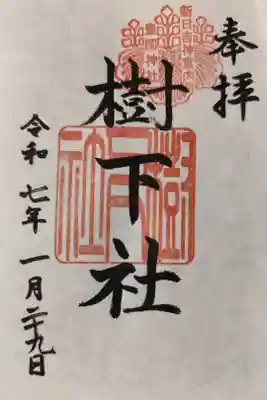 奉拝
樹下社
樹下社
令和七年一月二十九日